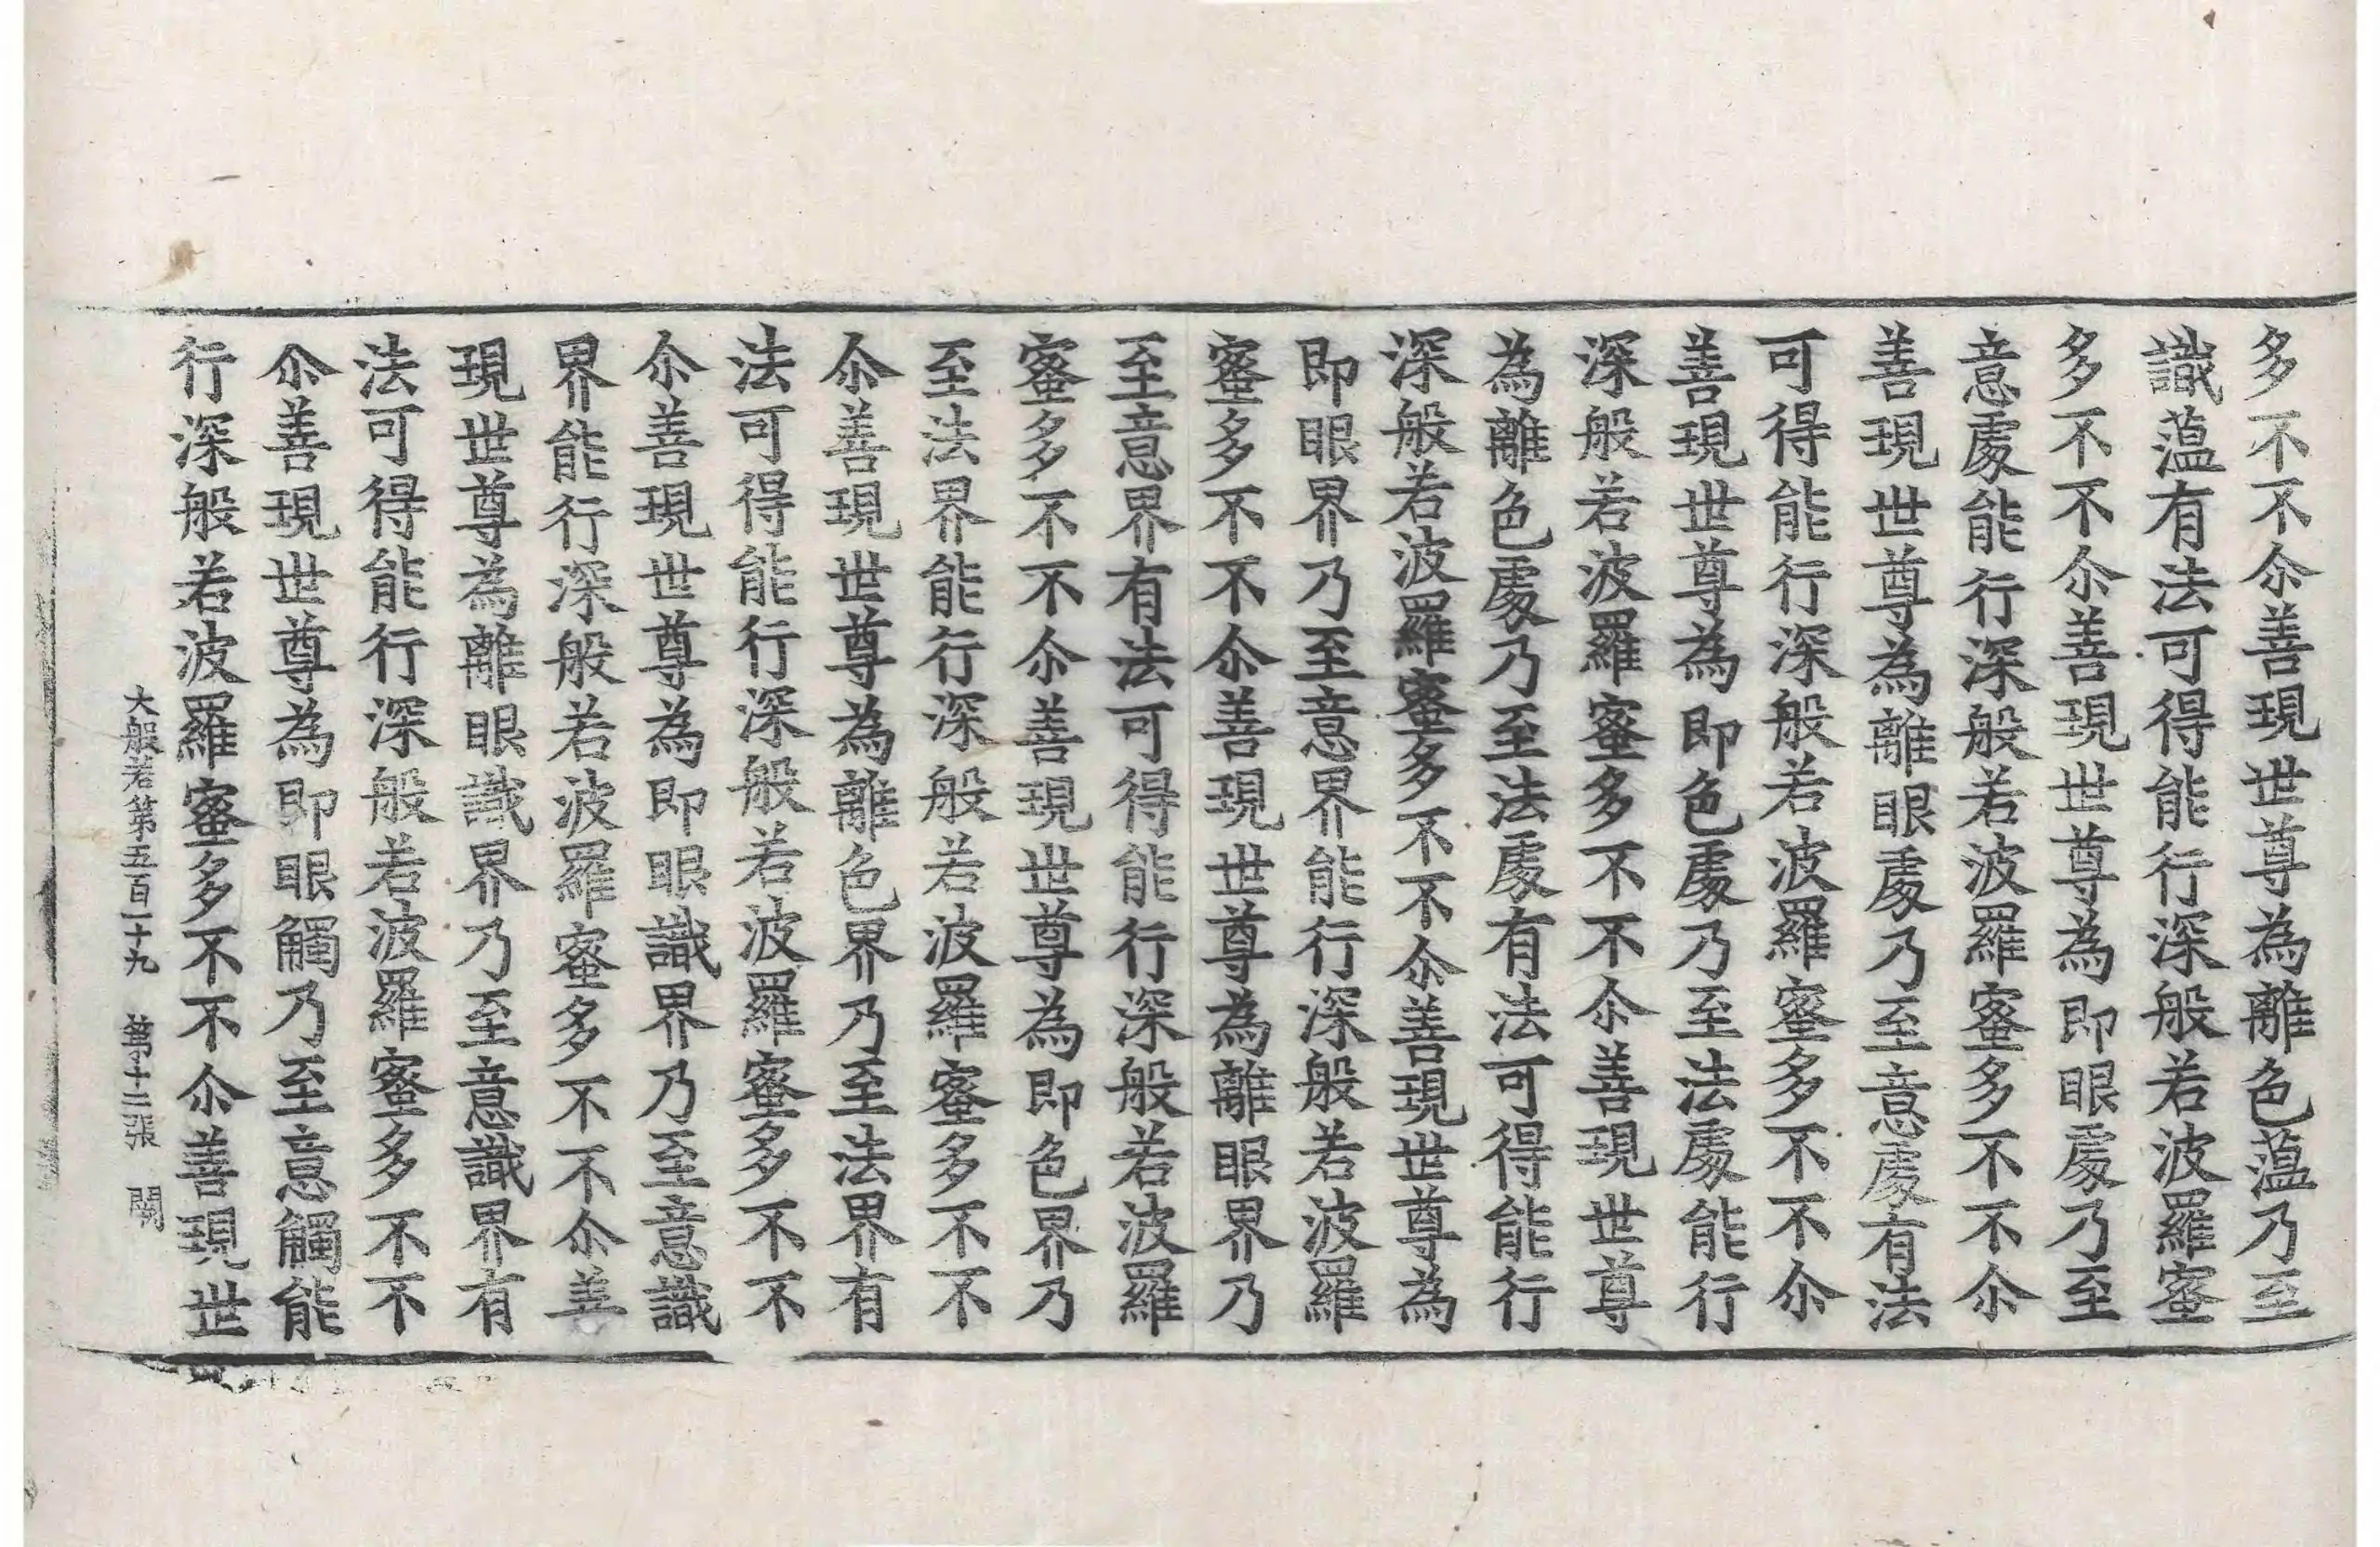 多不不尒善現世尊為離色蘊乃至
識蘊有法可得能行深般若波羅蜜
多不不尒善現世尊為即眼處乃至
意處能行深般若波羅蜜多不不尒
善現世尊為離眼處乃至意處有法
可得能行深般若波羅蜜多不不尒
善現世尊為即色處乃至法處能行
深般若波羅蜜多不不尒善現世尊
為離色處乃至法處有法可得能行
深般若波羅蜜多不不尒善現世尊為
即眼界乃至意界能行深般若波羅
蜜多不不尒善現世尊為離眼界乃
至意界有法可得能行深般若波羅
蜜多不不尒善現世尊為即色界乃
至法界能行深般若波羅蜜多不不
尒善現世尊為離色界乃至法界有
法可得能行深般若波羅蜜多不不
尒善現世尊為即眼識界乃至意識
界能行深般若波羅蜜多不不尒善
現世尊為離眼識界乃至意識界有
法可得能行深般若波羅蜜多不不
尒善現世尊為即眼觸乃至意觸能
行深般若波羅蜜多不不尒善現世
大般若第五百二十九 第十三張 闕